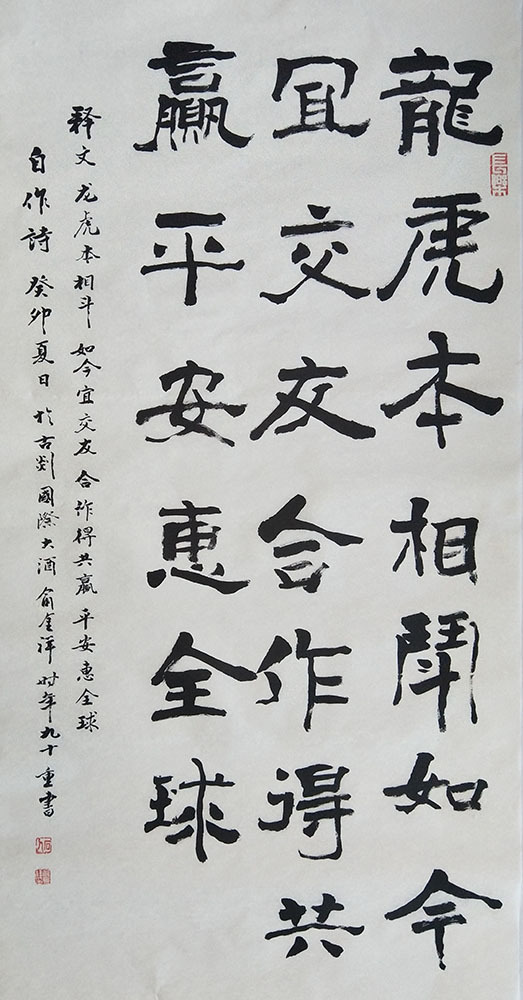 龍虎本相鬪如今
宜交友合作得共
贏平安恵全球
释文 龙虎本相斗 如今宜交友 合作得共赢 平安惠全球
自作詩 癸卯夏日 於古剡國際大酒 俞金祥 时年九十重書